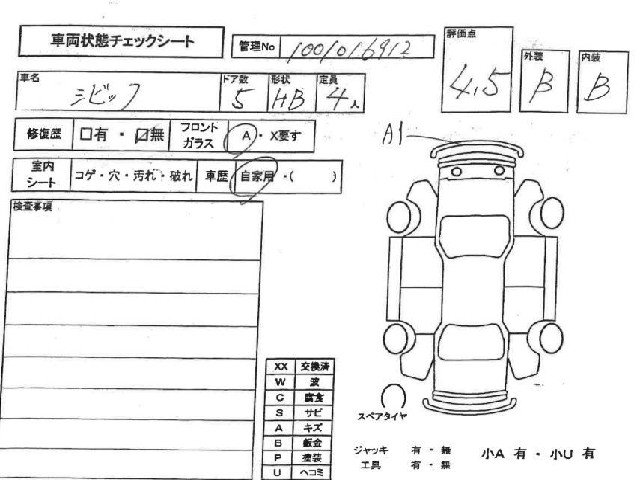 車両状態チェックシート
管理No 1001016912
評価点 4.5
外装 B
内装 B
車名 シビック
ドア数 5
形状 HB
定員 4人
修復歴 □有・☑無
フロントガラス A・X要す
室内シート コゲ・穴・汚れ・破れ
車歴 自家用・( )
検査事項
A1
XX 交換済
W 波
C 腐食
S サビ
A キズ
B 鈑金
P 塗装
U ヘコミ
スペアタイヤ
ジャッキ 有・無
工具 有・無
小A 有・小U 有